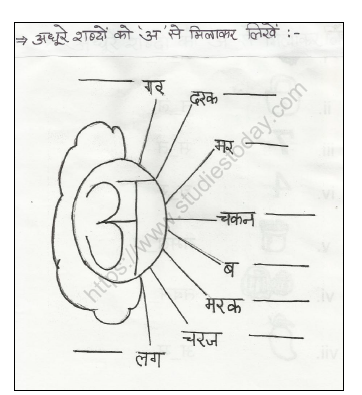 ⇒ अधूरे शब्दों को 'अ' से मिलाकर लिखें :-
गर
दरक
मर
चकन
ब
मरक
चरज
लग
अ
https://www.studiestoday.com